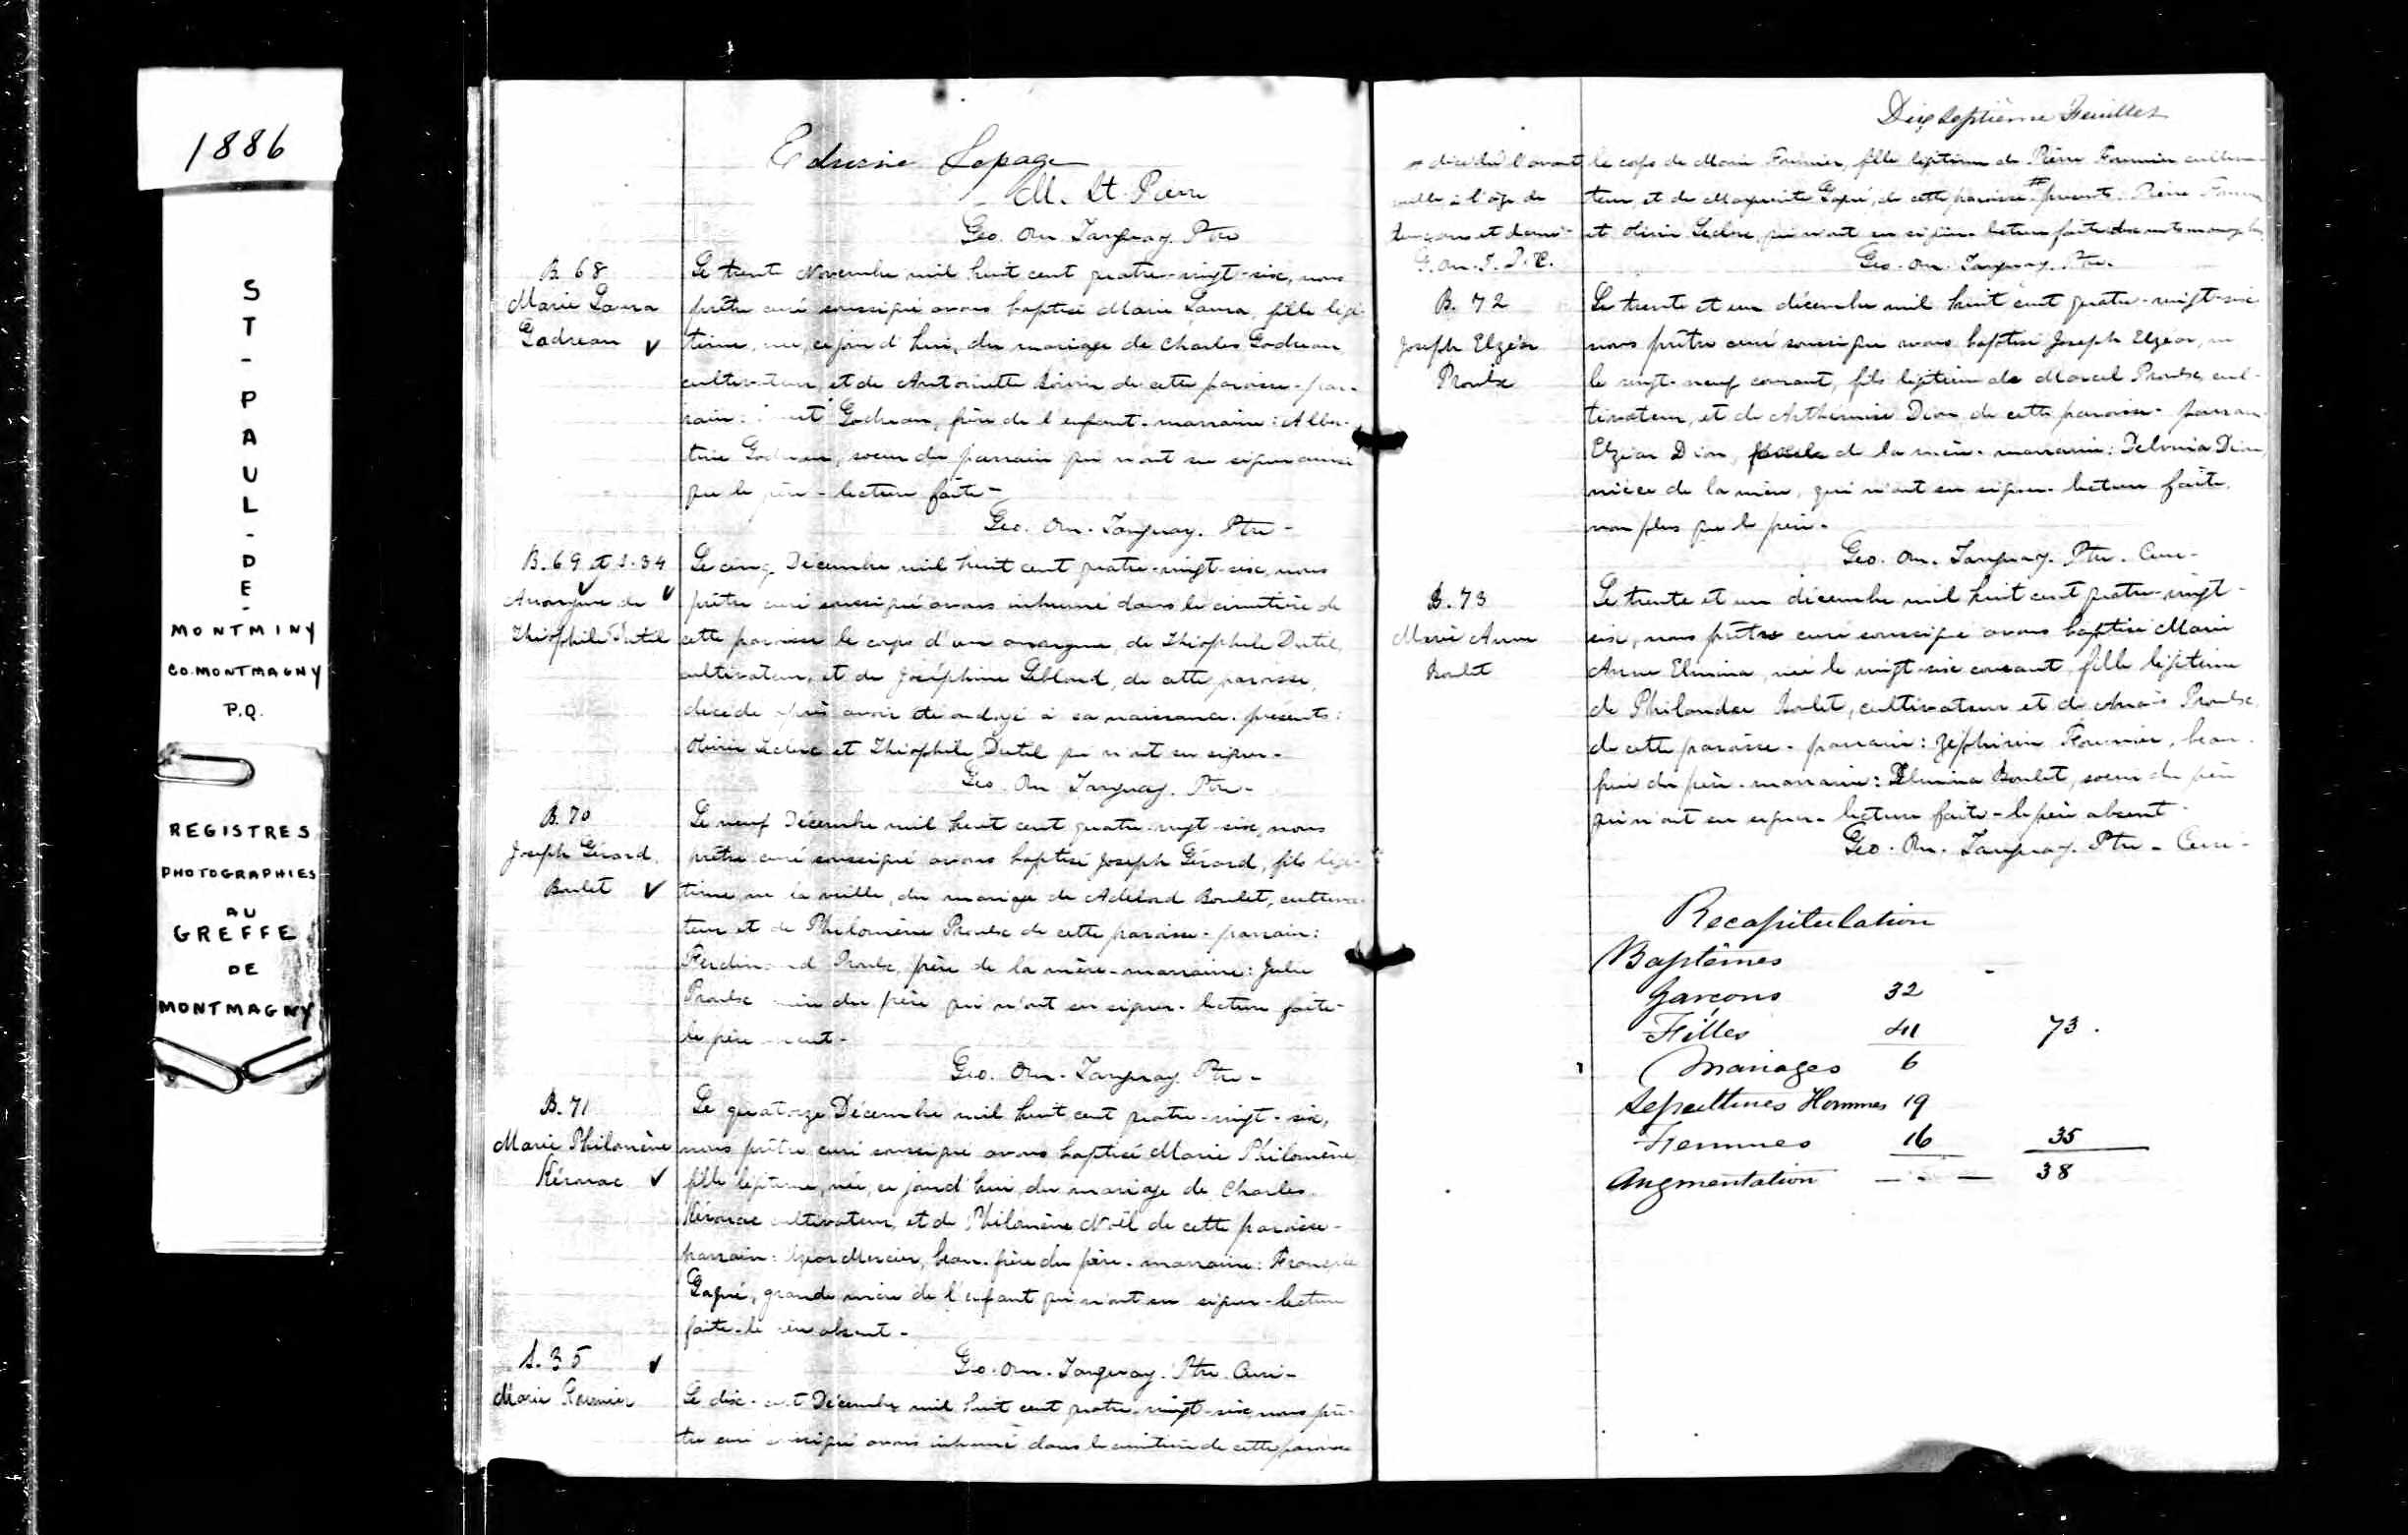 1886
ST-PAUL-DE-
MONTMINY
CO. MONTMAGNY
P.Q.
REGISTRES
PHOTOGRAPHIES
AU
GREFFE
DE
MONTMAGNY
Lepage
M. St Pierre
Geo. On. Tanguay. Ptre
B. 68
Marie Laura
Godreau
Le trente Novembre mil huit cent quatre-vingt-six, nous
prêtre curé soussigné avons baptisé Marie Laura, fille légi-
time, née, ce jour d'hui, du mariage de Charles Godreau
cultivateur, et de Antoinette Boivin de cette paroisse - par-
rain: Godreau, frère de l'enfant - marraine: Alber-
tine Godreau, soeur du parrain qui n'ont su signer ainsi
que le père - lecture faite -
Geo. On. Tanguay. Ptre -
B. 69 et S. 34
Anonyme de
Théophile Dutil
Le cinq Décembre mil huit cent quatre-vingt-six, nous
prêtre curé soussigné avons inhumé dans le cimetière de
cette paroisse le corps d'un anonyme, de Théophile Dutil,
cultivateur, et de Joséphine Leblond, de cette paroisse,
décédé après avoir été ondoyé à sa naissance. présents:
Olivier Leclerc et Théophile Dutil qui n'ont su signer -
Geo. On Tanguay. Ptre -
B. 70
Joseph Gérard
Boulet
Le neuf Décembre mil huit cent quatre-vingt-six, nous
prêtre curé soussigné avons baptisé Joseph Gérard, fils légi-
time, né la veille, du mariage de Adélard Boulet, cultiva-
teur et de Philomène Proulx de cette paroisse - parrain:
Ferdinand Proulx, frère de la mère - marraine: Julie
Proulx du père qui n'ont su signer - lecture faite -
le père
Geo. On. Tanguay. Ptre -
B. 71
Marie Philomène
Kérouac
Le quatorze Décembre mil huit cent quatre-vingt-six,
nous prêtre curé soussigné avons baptisé Marie Philomène,
fille légitime, née, ce jour d'hui, du mariage de Charles
Kérouac cultivateur, et de Philomène Noël de cette paroisse -
parrain: Mercier, beau-frère du père - marraine:
Gagné, grande mère de l'enfant qui n'ont su signer - lecture
faite - le père absent -
Geo. On. Tanguay. Ptre. Curé -
S. 35
Marie Fournier
Le dix- Décembre mil huit cent quatre-vingt-six, nous prê-
tre curé soussigné avons inhumé dans le cimetière de cette paroisse
Dix Septième Feuillet
# décédée l'avant
veille à l'âge de
ans et demi -
le corps de Marie Fournier, fille légitime de Pierre Fournier cultiva-
teur, et de Marguerite Gagné, de cette paroisse # présents: Pierre Fournier
et Olivier Leclerc, qui n'ont su signer - lecture faite
Geo. On. Tanguay. Ptre.
B. 72
Joseph Elzéar
Proulx
Le trente et un décembre mil huit cent quatre-vingt-six
nous prêtre curé soussigné avons baptisé Joseph Elzéar, né
le vingt-neuf courant, fils légitime de Marcel Proulx, cul-
tivateur, et de Arthémise Dion, de cette paroisse - parrain
Elzéar Dion, de la mère - marraine: Delvina Dion,
nièce de la mère, qui n'ont su signer - lecture faite
non plus que le père.
Geo. On. Tanguay. Ptre. Curé -
B. 73
Marie Anne
Boulet
Le trente et un décembre mil huit cent quatre-vingt-
six, nous prêtre curé soussigné avons baptisé Marie
Anne Elmina, née le vingt-six courant, fille légitime
de Philandre Boulet, cultivateur et de Anaïs Proulx,
de cette paroisse - parrain: Zéphirin Fournier, beau-
frère du père - marraine: Elmina Boulet, soeur du père
qui n'ont su signer - lecture faite - le père absent -
Geo. On. Tanguay. Ptre - Curé -
Recapitulation
Baptêmes
Garçons 32
Filles 41 73.
Mariages 6
Sepultures Hommes 19
Femmes 16 35
Augmentation 38